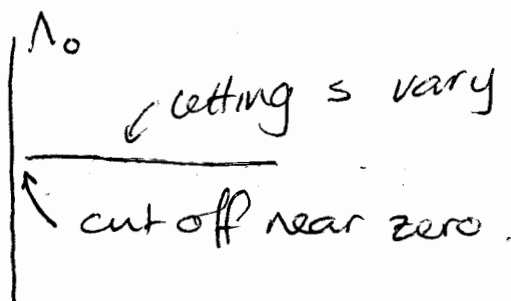 Λ₀
letting s vary
cut off near zero.